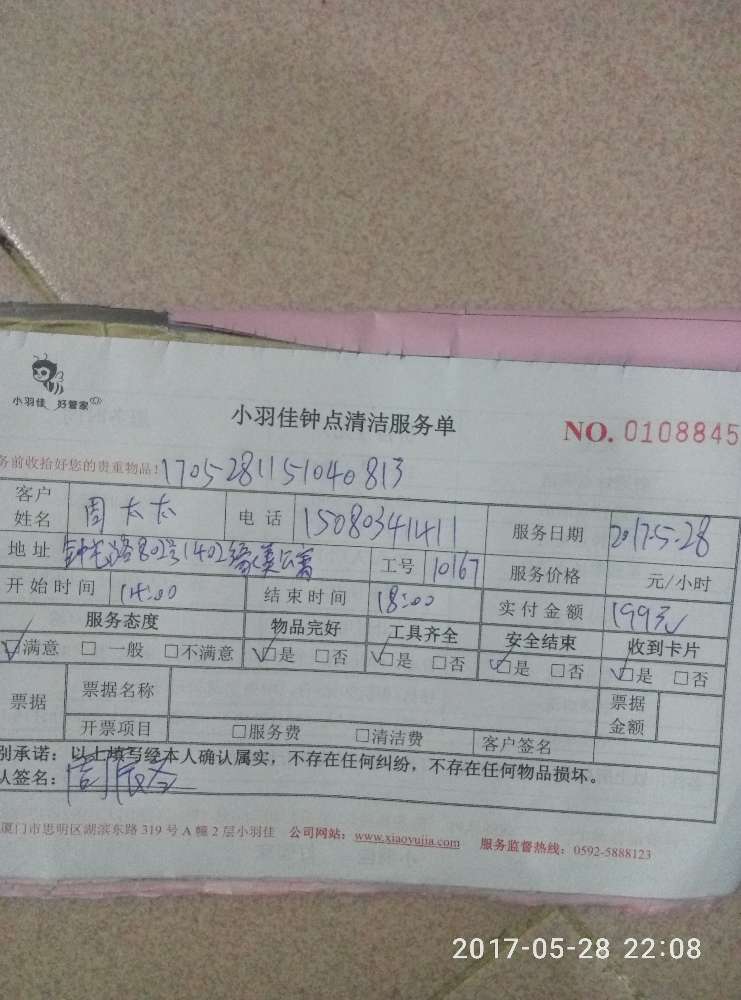 小羽佳 好管家
小羽佳钟点清洁服务单
NO. 0108845
务前收拾好您的贵重物品! 1705281151040813
客户姓名 周太太 电话 15080341411 服务日期 2017-5-28
地址 路802号1402 公寓 工号 10167 服务价格 元/小时
开始时间 14:00 结束时间 18:00 实付金额 199元
服务态度 物品完好 工具齐全 安全结束 收到卡片
☑满意 □ 一般 □不满意 ☑是 □否 ☑是 □否 ☑是 □否 ☑是 □否
票据 票据名称 票据金额
开票项目 □服务费 □清洁费 客户签名
别承诺:以上填写经本人确认属实,不存在任何纠纷,不存在任何物品损坏。
人签名:
厦门市思明区湖滨东路 319 号 A 幢 2 层小羽佳 公司网站:www.xiaoyujia.com 服务监督热线:0592-5888123
2017-05-28 22:08